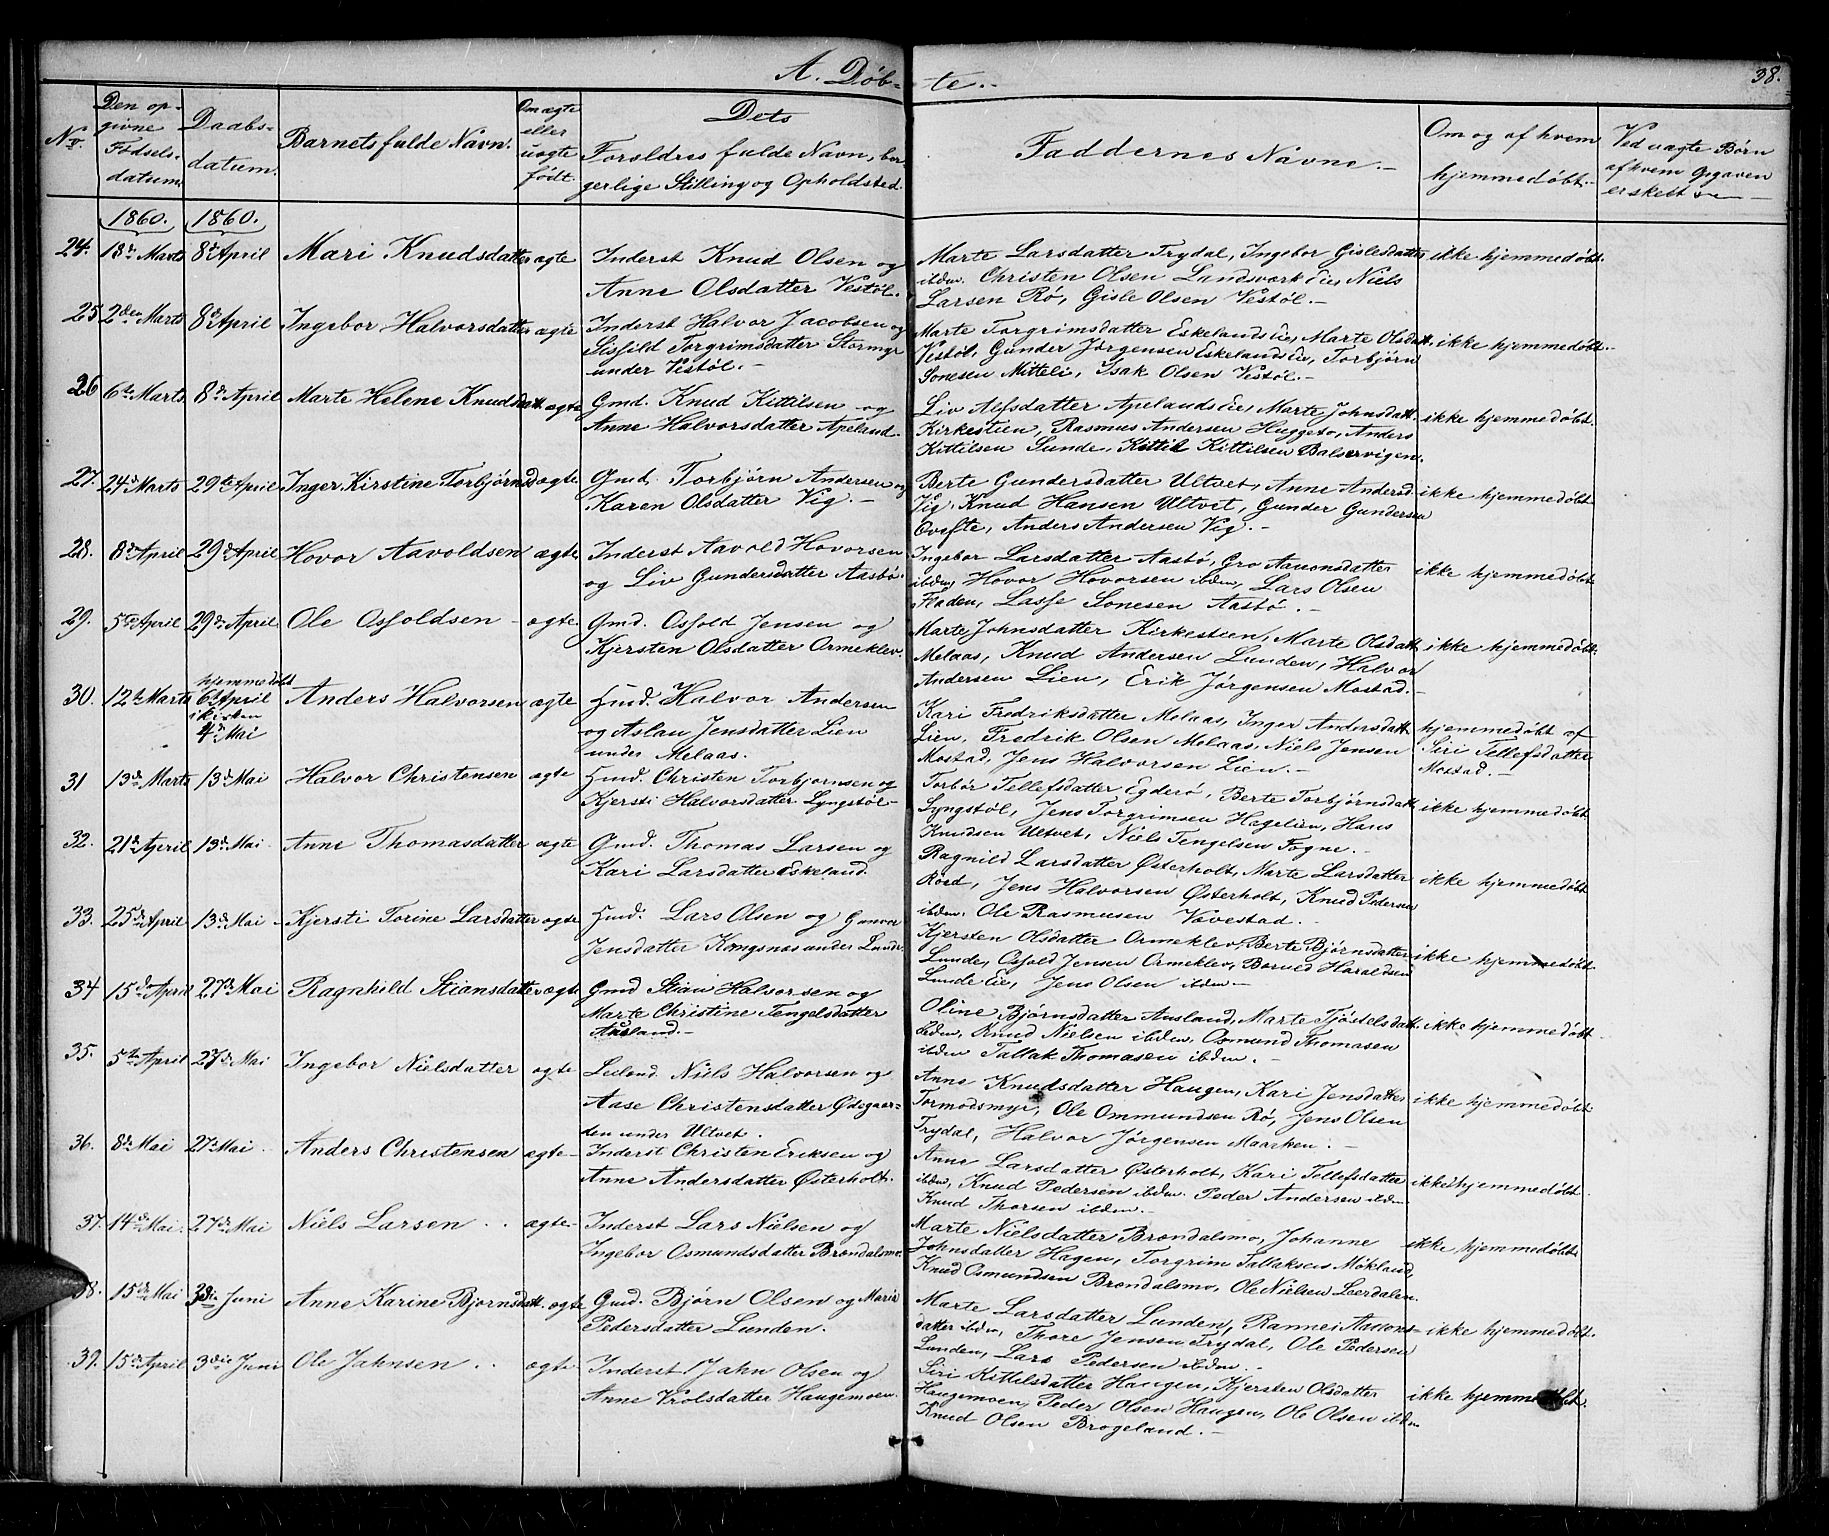 A. Døb- te.-
38.
No.
Den op-
givne
Fødsels-
datum.
Daabs-
datum.
Barnets fulde Navn.
Om ægte
eller
uægte
født.
Dets
Forældres fulde Navn, bor
gerlige Stilling og Opholdsted.
Faddernes Navne.-
Om og af hvem
hjemmedøbt.-
Ved uægte Børn
af hvem Opgaven
er skeet
1860. 1860.
24. 18de Marts 8de April Mari Knudsdatter ægte
Inderst Knud Olsen og
Anne Olsdatter Vestøl.
Marte Larsdatter Trydal, Ingebor Gislesdatter
ibdm. Christen Olsen Lundsværk Eie, Niels
Larsen Rø, Gisle Olsen Vestøl.-
ikke hjemmedøbt.
25 2den Marts 8de April Ingebor Halvorsdatter ægte
Inderst Halvor Jacobsen og
Sisfild Torgrimsdatter Stormyr
under Vestøl.-
Marte Torgrimsdatter Eskelands Eie, Marte Olsdatt.
Vestøl, Gunder Jørgensen Eskelands Eie, Torbjørn
Sonesen Mitteli, Isak Olsen Vestøl.-
ikke hjemmedøbt.-
26 6te Marts 8de April Marte Helene Knudsdatt. ægte
Gmd. Knud Kittilsen og
Anne Halvorsdatter Apeland.
Liv Alfsdatter Apelands Eie, Marte Johnsdatt.
Kirkestien, Rasmus Andersen Huggeto, Anders
Kittilsen Sunde, Kittil Kittilsen Balservigen.
ikke hjemmedøbt.
27. 24de Marts 29de April Inger Kirstine Torbjørnsd. ægte
Gmd. Torbjørn Andersen og
Karen Olsdatter Vig.-
Berte Gundersdatter Ultvet, Anne Andersd.
Vig, Knud Hansen Ultvet, Gunder Gundersen
Anders Andersen Vig.-
ikke hjemmedøbt.
28. 8de April 29de April Hovor Aavoldsen ægte
Inderst Aavold Hovorsen
og Liv Gundersdatter Aasbø.
Ingebor Larsdatter Aasbø, Gro Aanonsdatter
ibdm, Hovor Hovorsen ibdm, Lars Olsen
Fladen, Lasse Sonesen Aasbø.-
ikke hjemmedøbt.
29. 5te April 29de April Ole Osfoldsen - ægte.
Gmd. Osfold Jensen og
Kjersten Olsdatter Ormeklev.
Marte Johnsdatter Kirkestien, Marte Olsdatt.
Melaas, Knud Andersen Lunden, Halvor
Andersen Lien, Erik Jørgensen Mostad.-
ikke hjemmedøbt.
30. 12te Marts hjemmedøbt
6te April
i kirken
4de Mai
Anders Halvorsen ægte
Hmd. Halvor Andersen
og Aslau Jensdatter Lien
under Melaas.
Kari Fredriksdatter Melaas, Inger Andersdatt.
Lien, Fredrik Olsen Melaas, Niels Jensen
Mostad, Jens Halvorsen Lien.-
hjemmedøbt af
Siri Tellefsdatter
Mostad.-
31 13de Marts 13de Mai Halvor Christensen ægte
Hmd. Christen Torbjornsen og
Kjersti Halvorsdatter Lyngstøl-
Torbør Tellefsdatter Egderø, Berte Torbjørnsdatt.
Lyngstøl, Jens Torgrimsen Hagelien, Hans
Knudsen Ultvet, Niels Tengelsen Fogne.-
ikke hjemmedøbt
32. 21de April 13de Mai. Anne Thomasdatter ægte
Gmd. Thomas Larsen og
Kari Larsdatter Eskeland.
Ragnild Larsdatter Østerholt, Marte Larsdatter
Røed, Jens Halvorsen Østerholt, Knud Pedersen
ibdm. Ole Rasmusen Vævestad.
ikke hjemmedøbt
33. 25de April 13de Mai - Kjersti Torine Larsdatter ægte
Hmd. Lars Olsen og Gunvor
Jensdatter Kongsnæs under Lunde.
Kjersten Olsdatter Ormeklev, Berte Bjørnsdatter
Lunde, Osfold Jensen Ormeklev, Borved Haraldsen
Lunde Eie, Jens Olsen ibdm.-
ikke hjemmedøbt.
34 15de April 27de Mai Ragnhild Stiansdatter ægte
Gmd Stian Halvorsen og
Marte Christine Tengelsdatter
Ausland.-
Oline Bjørnsdatter Ausland, Marte Tjøstelsdatt.
ibdm, Knud Nielsen ibdm, Osmund Thomasen
ibdm Tallak Thomasen ibdm.-
ikke hjemmedøbt.
35. 5te April 27de Mai Ingebor Nielsdatter ægte
Leilænd. Niels Halvorsen og
Aase Christensdatter Ødegaar-
den under Ultvet.
Anne Knudsdatter Haugen, Kari Jensdatter
Tormodsmyr, Ole Ommundsen Rø, Jens Olsen
Trydal, Halvor Jørgensen Maarken.-
ikke hjemmedøbt
36. 8de Mai 27 Mai. Anders Christensen ægte-
Inderst Christen Eriksen og
Anne Andersdatter Østerholt.
Anne Larsdatter Østerholt, Kari Tellefsdatter
ibdm, Knud Pedersen ibdm. Peder Andersen ibdm
Knud Thorsen ibdm.-
ikke hjemmedøbt.
37. 14de Mai. 27de Mai Niels Larsen .. ægte-
Inderst Lars Nielsen og
Ingebor Osmundsdatter Brøndalsmo.
Marte Nielsdatter Brøndalsmo, Johanne
Johnsdatter Hagen, Torgrim Tallaksen Møkland,
Knud Osmundsen Brøndalsmo, Ole Nielsen Leerdalen.
ikke hjemmedøbt
38. 15de Mai 3die Juni Anne Karine Bjørnsdatt. ægte
Gmd. Bjørn Olsen og Maria
Pedersdatter Lunden.
Marte Larsdatter Lunden, Rannei Aasons-
datter ibdm, Thore Jensen Trydal, Ole Pedersen
Lunden, Lars Pedersen ibdm.-
ikke hjemmedøbt.
39. 15de April 3die Juni Ole Jahnsen .. ægte
Inderst Jahn Olsen og
Anne Vrolsdatter Haugemoen.
Siri Kittilsdatter Haugen, Kjersten Olsdatter
Haugemoen, Peder Olsen Haugen, Ole Olsen ibdm
Knud Olsen Brøgeland.-
ikke hjemmedøbt.